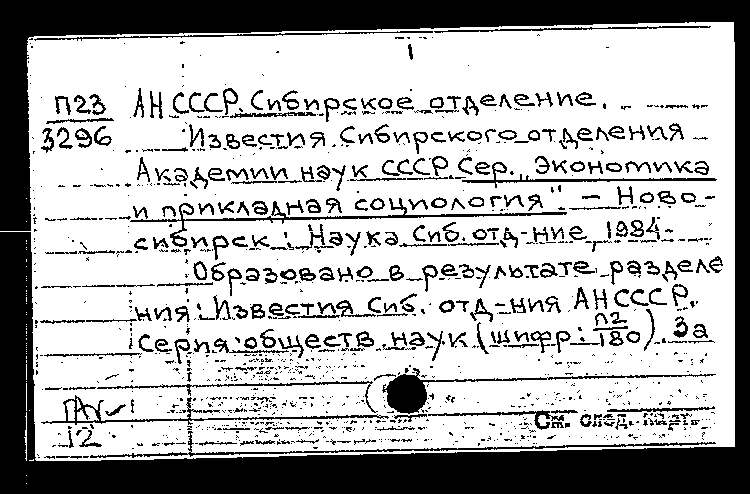 1
П23 АН СССР. Сибирское отделение.
3296 Известия Сибирского отделения
Академии наук СССР. Сер. „Экономика
и прикладная социология". – Ново-
сибирск: Наука. Сиб. отд-ние, 1984-
Образовано в результате разделе
ния: Известия Сиб. отд-ния АН СССР.
Серия: обществ. наук (шифр: П2/180). За
12.
См. след. карт.